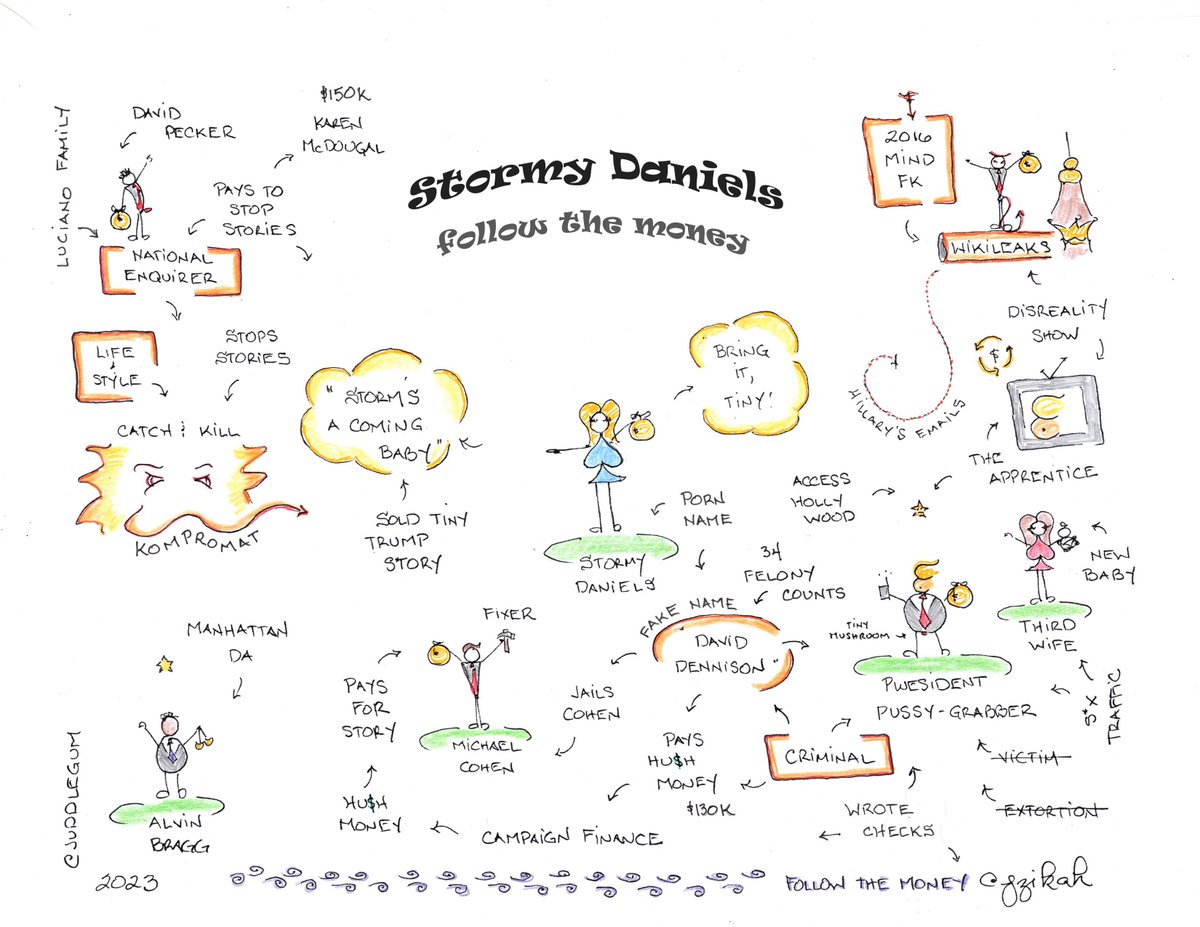 Stormy Daniels
follow the money
LUCIANO FAMILY
DAVID
PECKER
$150K
KAREN
McDOUGAL
PAYS TO
STOP
STORIES
NATIONAL
ENQUIRER
LIFE
&
STYLE
STOPS
STORIES
CATCH & KILL
KOMPROMAT
"STORM'S
A COMING
BABY"
SOLD TINY
TRUMP
STORY
BRING
IT,
TINY!
2016
MIND
FK
WIKILEAKS
HILLARY'S EMAILS
DISREALITY
SHOW
$
THE
APPRENTICE
ACCESS
HOLLY
WOOD
PORN
NAME
STORMY
DANIELS
34
FELONY
COUNTS
FAKE NAME
"DAVID
DENNISON"
NEW
BABY
THIRD
WIFE
TINY
MUSHROOM
PWESIDENT
PUSSY-GRABBER
S*X
TRAFFIC
VICTIM
EXTORTION
CRIMINAL
WROTE
CHECKS
JAILS
COHEN
PAYS
HU$H
MONEY
$130K
FIXER
MICHAEL
COHEN
PAYS
FOR
STORY
HU$H
MONEY
CAMPAIGN FINANCE
MANHATTAN
DA
ALVIN
BRAGG
@JUDDLEGUM
2023
FOLLOW THE MONEY @fzikah